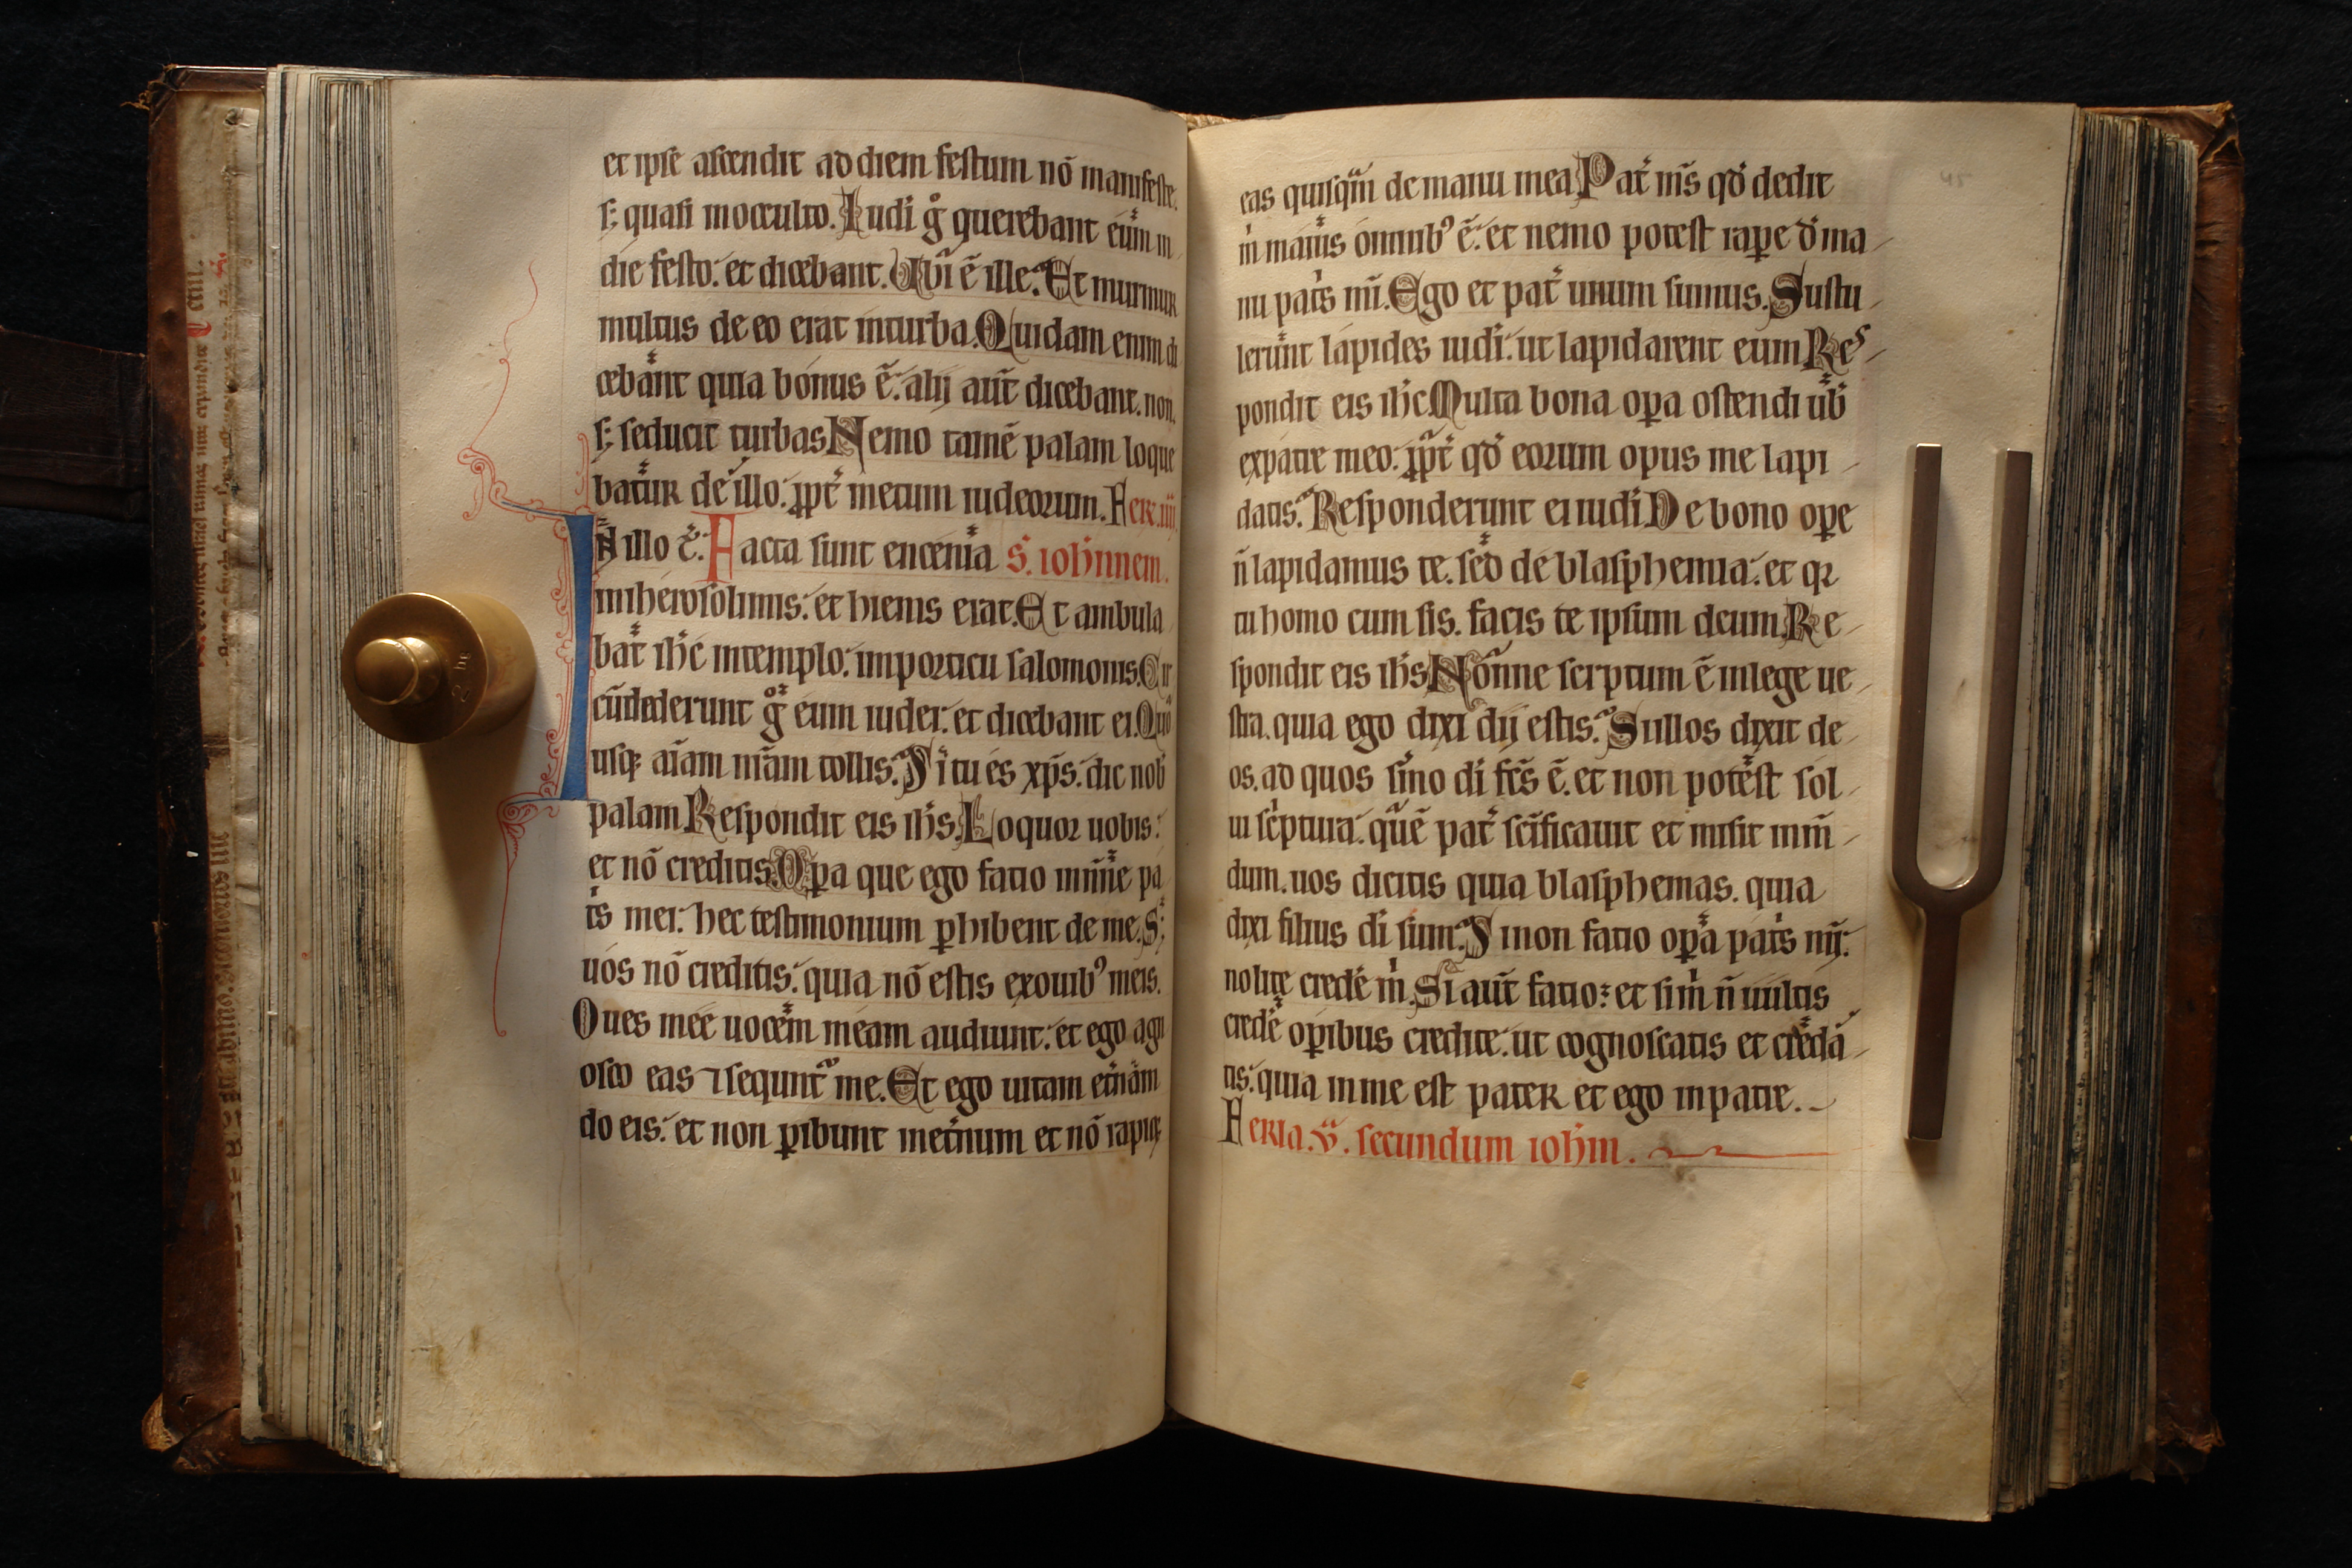 et ipse ascendit ad diem festum nō manifeste.
s; quasi inocculto. Iudi gͦ querebant eūm in
die festo. et dicebant. Ubi ē ille. Et murmur
multus de eo erat inturba. Quidam enim di
cebant quia bonus ē. alij aut̄ dicebant. non.
s; seducit turbas Nemo tamē palam loque
batur de illo. ꝓpt̄ metum iudeorum. Fer. iiij.
In illo t̄. Facta sunt encenia S. ioh̄nnem.
iniherosolimis. et hiems erat. Et ambula
bat ih̄c intemplo. importicu salomonis. Cir
cūdederunt gͦ eum iudei. et dicebant ei. Quō
usqꝫ aīam nr̄am tollis. Si tu es xp̄s. dic nob̄
palam Respondit eis ih̄s. Loquor uobis.
et nō creditis Opa que ego facio inn̄ie pa
tͥs mei. hec testimonium ꝑhibent de me. S;
uos nō creditis. quia nō estis exouib⁹ meis.
Oues mee uocem meam audiunt. et ego agn
osco eas ⁊ sequnt᷑ me. Et ego uitam et̄nam
do eis. et non ꝑibunt inet̄num et nō rapiꝫ
eas quisq̄m de manu mea Pat̄ m̄s qd̄ dedit
m̄ maius omnib⁹ ē. et nemo potest raꝑe d̄ ma
nu patͥs mī. Ego et pat̄ unum sumus. Sustu
lerunt lapides iudi. ut lapidarent eum Res
pondit eis ih̄c Multa bona oꝑa ostendi ub̄
expatre meo. ꝓpt̄ qd̄ eorum opus me lapi
datis. Responderunt ei iudi De bono oꝑe
n̄ lapidamus te. sed de blasphemia. et qꝛ
tu homo cum sis. facis te ipsum deum. Re
spondit eis ih̄s Nonne scrptum ē inlege ue
stra. quia ego dixi dij estis. Sillos dixit de
os. ad quos s̄mo di fc̄s ē. et non potest sol
ui sc̄ptura. quē pat̄ sc̄ificauit et misit inm̄
dum. uos dicitis quia blasphemas. quia
dixi filius di sum. Si non facio oꝑa patͥs mī.
nolite credē m̄. Si aut̄ facio. et sim̄ n̄ uultis
credē oꝑibus credite. ut cognoscatis et credā
tis. quia in me est pater et ego inpatre.
Feria. v. secundum ioh̄m.
45